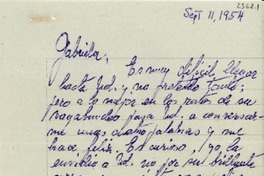 Sept 11, 1954
Gabriela,
Es muy difícil llegar
hasta Ud. y no pretendo tanto;
pero a lo mejor en los ratos de su
vagabundeo haga Ud. a conversar-
me unas cuatro palabras y me
hace feliz. Es curioso, yo la
envidio a Ud. no por su brillante